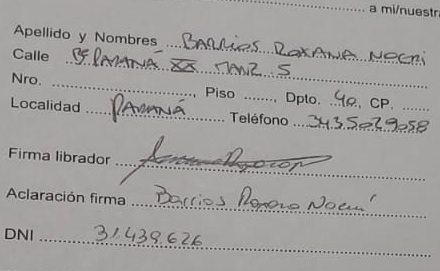 a mi/nuestra
Apellido y Nombres BARRIOS ROXANA NOEMI
Calle Bº PARANÁ XX MANZ 5
Nro. , Piso , Dpto. 40, CP.
Localidad PARANÁ Teléfono 3435029058
Firma librador
Aclaración firma Barrios Roxana Noemí
DNI 31.439.626